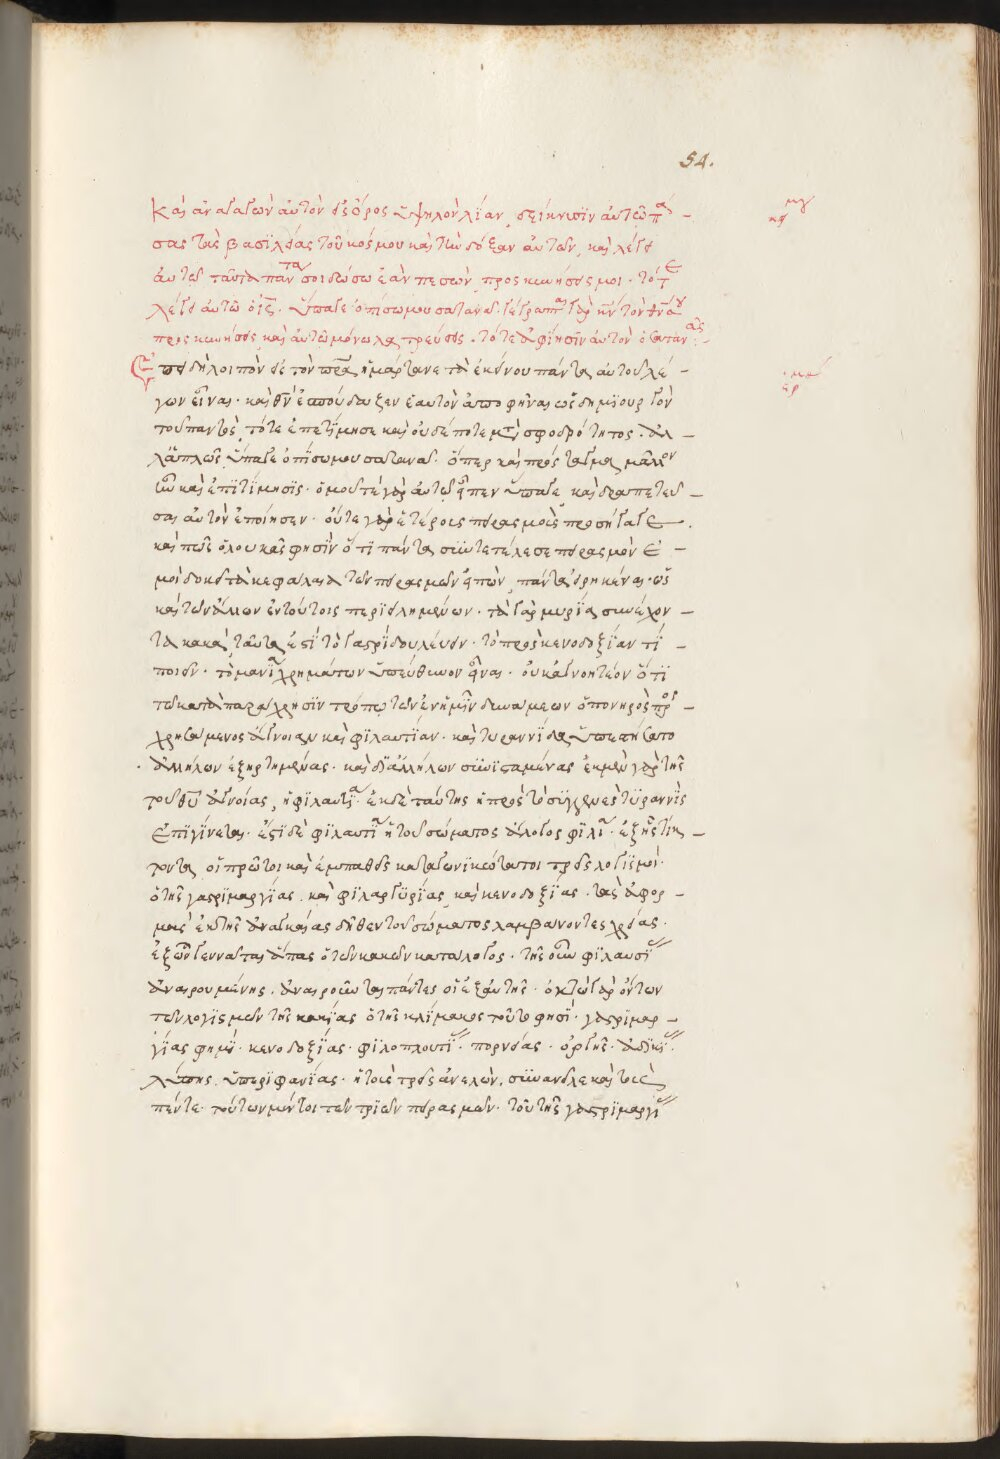 54.
Καὶ ἀναγαγὼν αὐτὸν εἰς ὄρος ὑψηλὸν λίαν, δείκνυσϊν αὐτῶ πά –
σας τὰς βασϊλείας τοῦ κόσμου καὶ τὴν δόξαν αὐτῶν, καὶ λέγει
αὐτῶ ταῦτα πάντα σοι δώσω ἐὰν πεσὼν, προσκυνήσης μοι · τότε
λέγει αὐτῶ ὁ ις̅ · ὕπαγε ὀπίσω μου σατανᾶ · γέγραπται γὰρ κν̅ τὸν θν̅ σου
προσκυνήσεις, καὶ αὐτῶ μόνω λατρεύσεις · τότε ἀφίησιν αὐτὸν ὁ σατανᾶς :
Ἐπεὶ δὴ λοιπὸν εἰς τὸν πρ̅α ἡμάρτανε τὰ ἐκείνου πάντα αὐτοῦ λέ –
γων εἶναι · καὶ θν̅ ἐσπούδαξεν ἑαυτὸν ἀποφῆναι ὡς δημϊουργὸν
τοῦ παντὸς, τότε ἐπετίμησε καὶ οὐδέποτε μετὰ σφοδρότητος · ἀλ –
λ' ἁπλῶς ὕπαγε ὀπίσω μου σατανᾶ · ὅπερ καὶ πρόσταγμα μᾶλλον
ἦν καὶ ἐπϊτίμησϊς · ὁμοῦ τε γὰρ αὐτῶ εἶπεν ὕπαγε καὶ δραπετεῦ –
σαι αὐτὸν ἐποίησεν · οὔτε γὰρ ἑτέροις πειρασμοὺς προσήγαγε .
καὶ πῶς ὁ λουκᾶς φησὶν ὅτϊ πάντα συνετέλεσε πειρασμὸν ἐ –
μοὶ δοκεῖ τὰ κεφάλαια τῶν πειρασμῶν εἰπὼν, πάντα εἰρηκέναι · ὡς
καὶ τῶν ἄλλων ἐν τούτοις περϊειλημμένων · τὰ γὰρ μυρία συνέχον –
τα κακὰ, ταῦτα ἐστὶ τὸ γαστρὶ δουλεύειν · τὸ πρὸς κενοδοξίαν τὶ –
ποιεῖν · τὸ μανία χρημάτων ὑπεύθυνον εἶναι · οὐκ ἀγνοητέον ὅτϊ
τῶ κατὰ παράχρησϊν τρόπω τῶν ἐν ἡμῖν δυνάμεων ὁ πονηρὸς προς –
χρησάμενος ἄγνοιαν καὶ φϊλαυτίαν · καὶ τυραννίδα ὑπεστήσατο
ἀλλήλων ἐξηρτημένας · καὶ δϊ' ἀλλήλων συνϊσταμένας ἐκ μὲν γὰρ τῆς
τοῦ θυ̅ ἀγνοίας, ἡ φϊλαυτία · ἐκ δὲ ταύτης ἡ πρὸς τὸ συγγενὲς τϋραννὶς
ἐπϊγίνεται · ἔστϊ δὲ φϊλαυτία ἡ τοῦ σώματος ἄλογος φϊλία · ἐξ ἧς τίκ –
τονται οἱ πρῶτοι καὶ ἐμπαθεῖς καὶ γενϊκώτατοι τρεῖς λογϊσμοὶ ·
ὁ τῆς γαστριμαργίας · καὶ φϊλαργϋρίας, καὶ κενοδοξίας · τὰς ἀφορ –
μὰς ἐκ τῆς ἀναγκαίας δῆθεν τοῦ σώματος λαμβάνοντες χρείας ·
ἐξ ὧν γεννᾶται ἅπας ὁ τῶν κακῶν κατάλογος · τῆς οὖν φϊλαυτί
ἀναιρουμένης, ἀναιροῦνται πάντες οἱ ἐξ αὐτῆς · ὀκτὼ γὰρ ὄντων
τῶν λογϊσμῶν τῆς κακίας ὁ τῆς κλίμακος τοῦτο φησὶ · γαστριμαρ –
γίας φημὶ · κενοδοξίας · φϊλοπλουτί · πορνείας · ὀργῆς · ἀδϊκί ·
λύπης · ὑπερϊφανίας · ἡ τοὺς τρεῖς ἀνελὼν, συνανεῖλε καὶ τοὺς
πέντε · τούτων μέντοι τῶν τρϊῶν πειρασμῶν · τοῦ τῆς γαστρϊμαργί